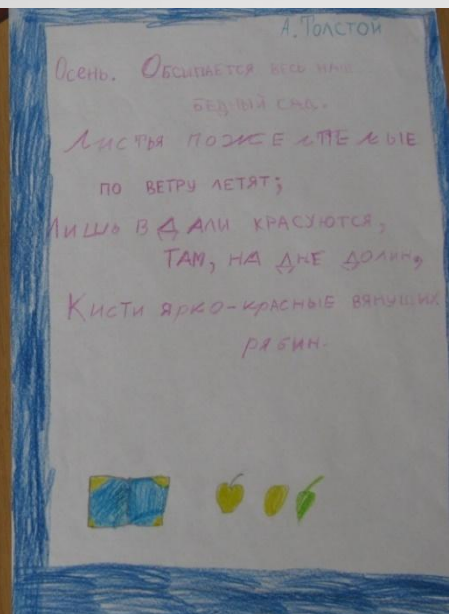 А. Толстой
Осень. Обсыпается весь наш
бедный сад.
Листья пожелтелые
по ветру летят;
Лишь в дали красуются,
там, на дне долин,
Кисти ярко-красные вянущих
рябин.